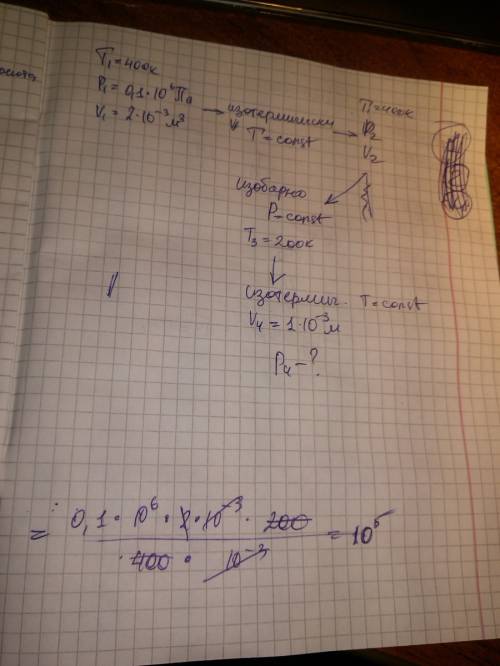 T₁=400к
P₁=0,1·10⁶Па
V₁=2·10⁻³м³
→ изотермически
T=const
→ T=400к
P₂
V₂
изобарно
P-const
T₃=200к
изотермич. T=const
V₄=1·10⁻³м
P₄-?
= 0,1·10⁶·2·10⁻³·200 / 400·10⁻³ = 10⁵